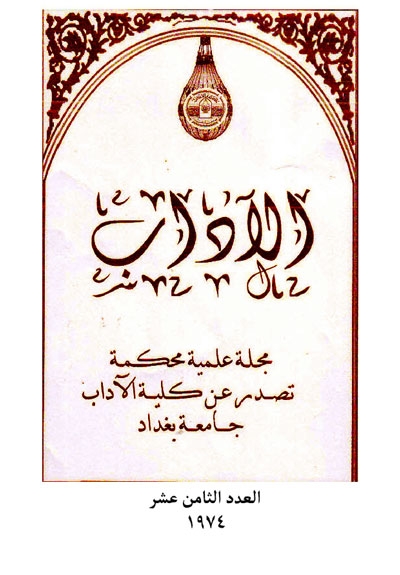 الآداب
مجلة علمية محكمة
تصدر عن كلية الآداب
جامعة بغداد
العدد الثامن عشر
١٩٧٤